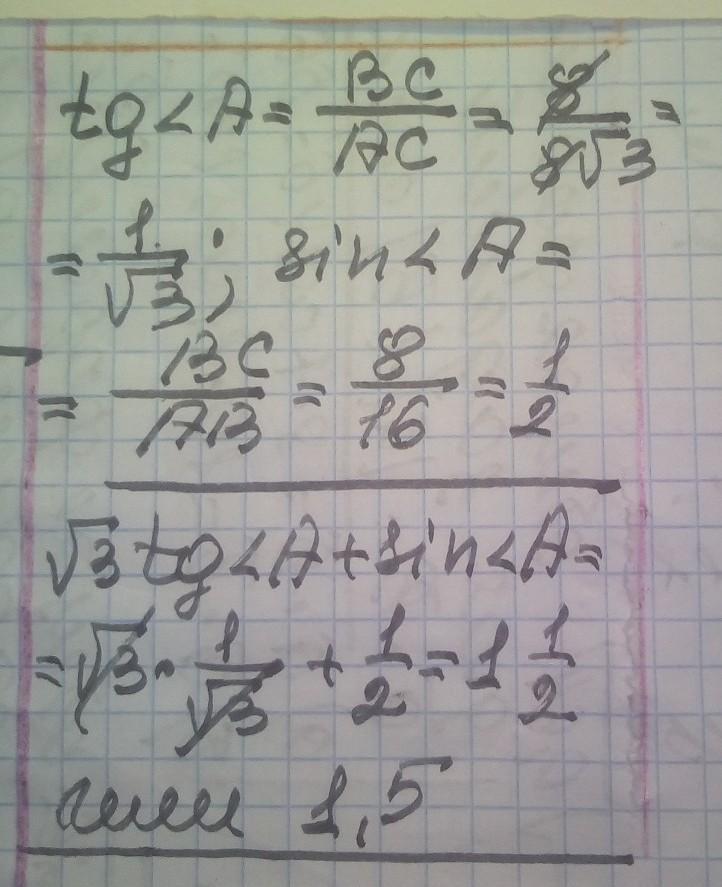 tg<A = BC/AC = 8/8√3 =
= 1/√3; sin<A =
= BC/AB = 8/16 = 1/2
√3 tg<A + sin<A =
= √3 · 1/√3 + 1/2 = 1 1/2
или 1,5